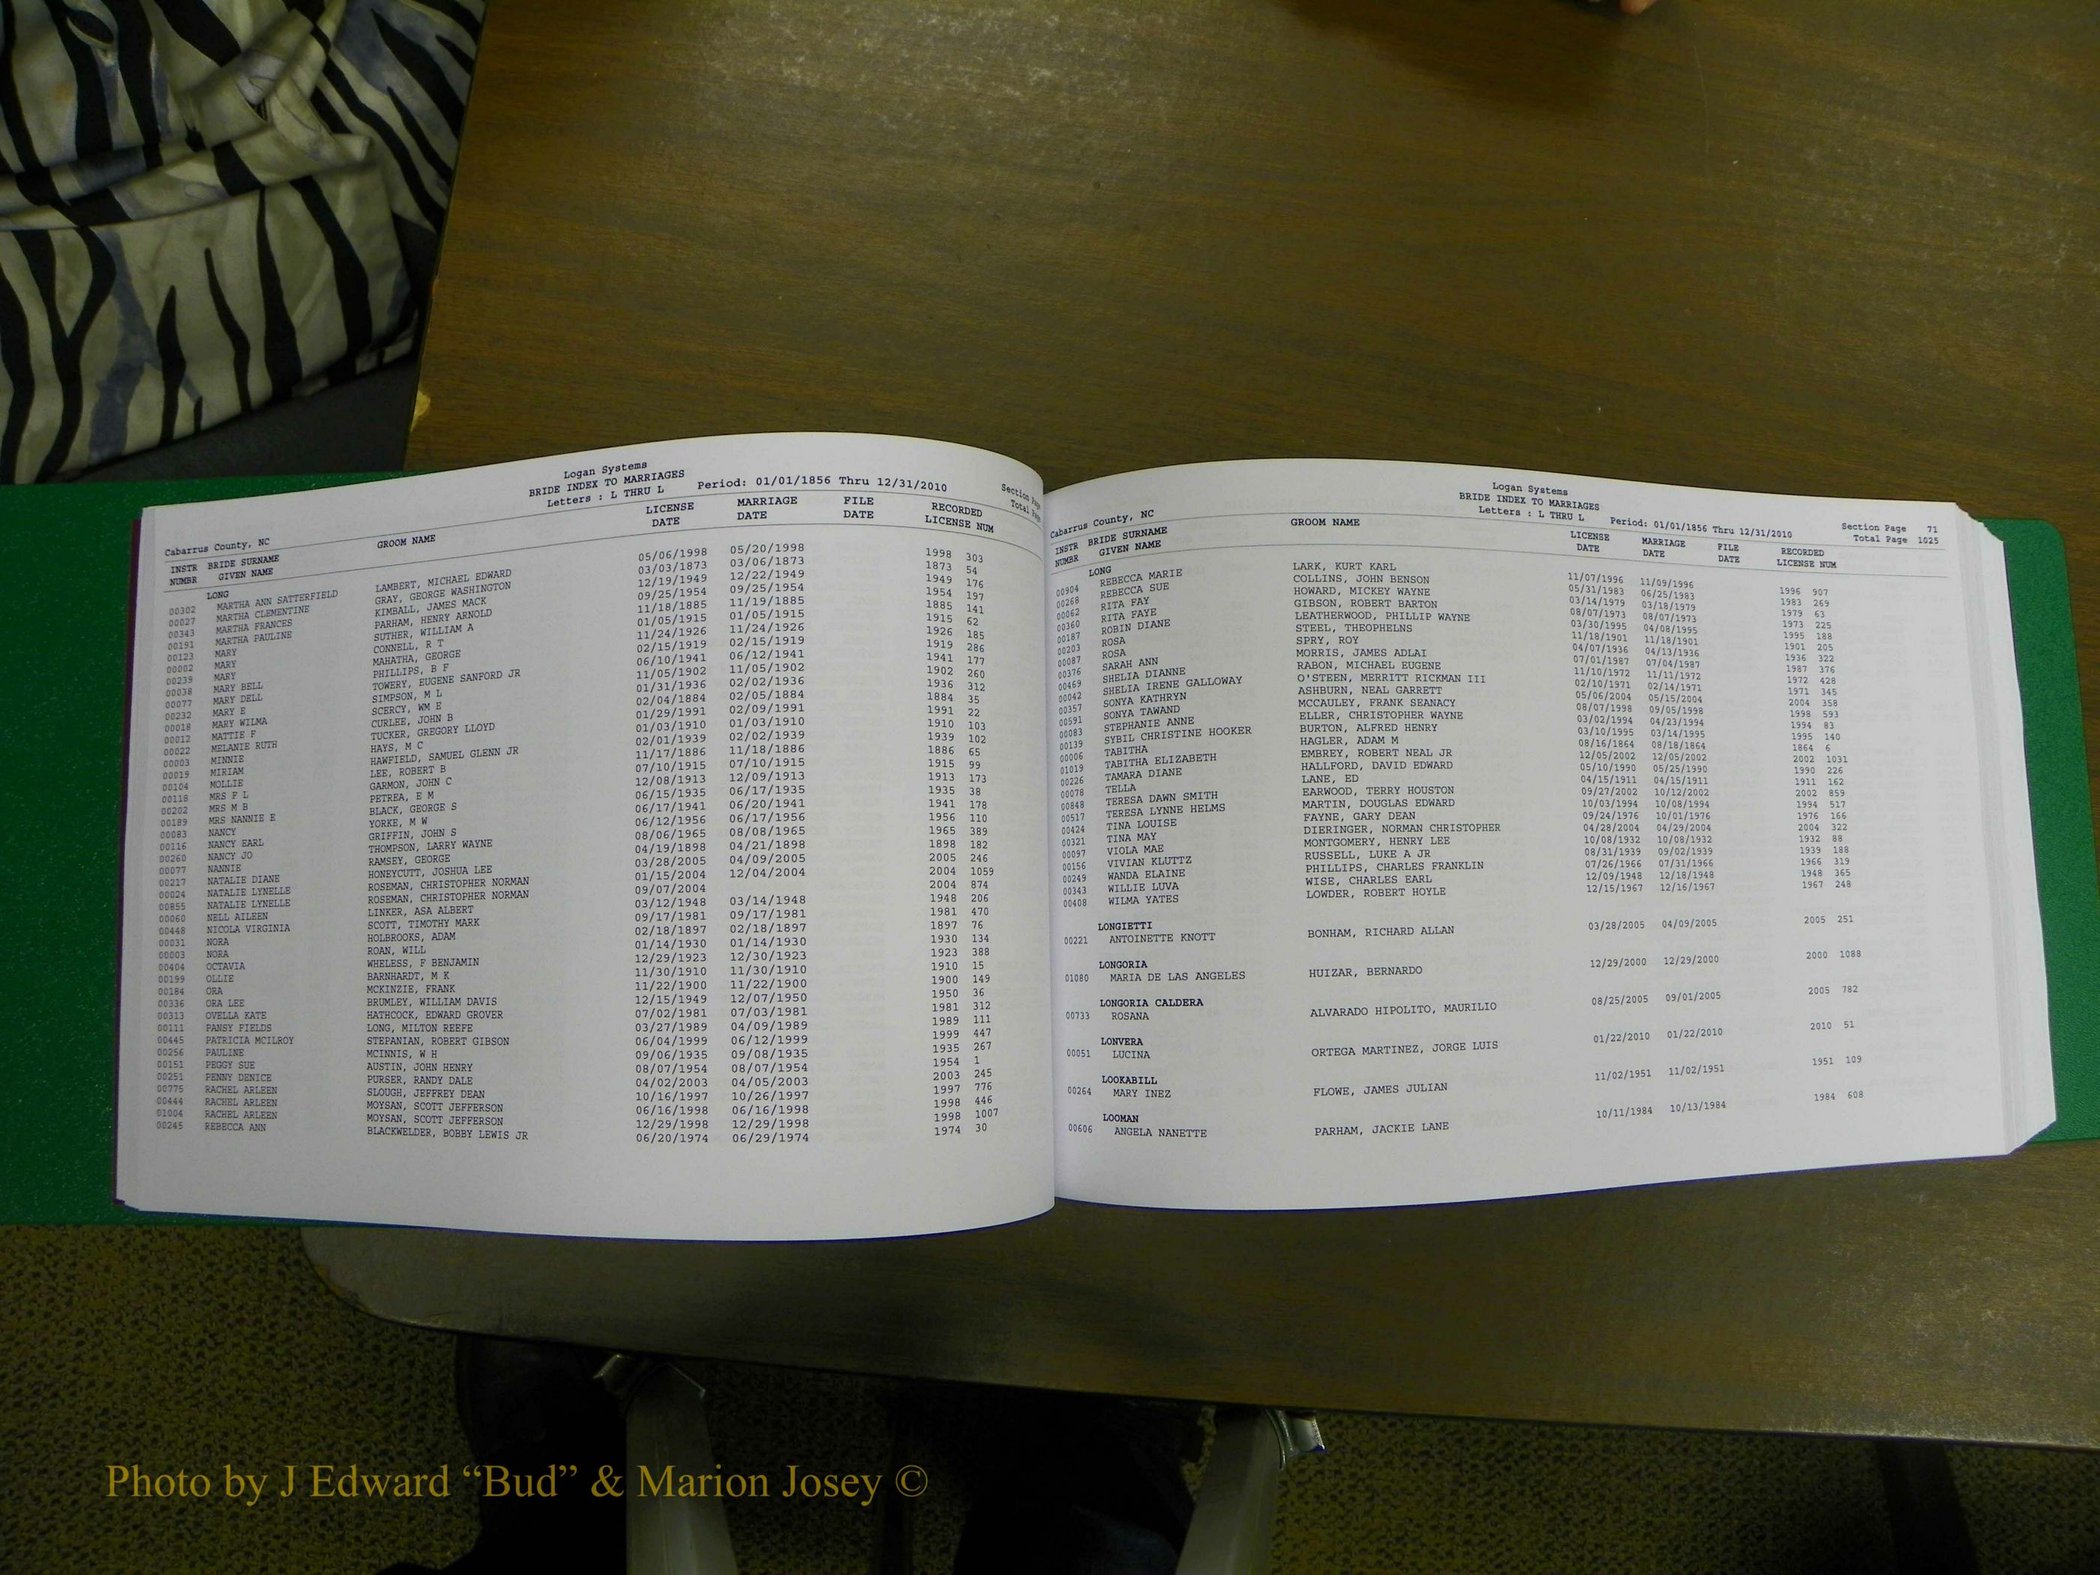 Logan Systems
BRIDE INDEX TO MARRIAGES
Letters : L THRU L Period: 01/01/1856 Thru 12/31/2010 Section Page
Cabarrus County, NC Total Page
INSTR BRIDE SURNAME GROOM NAME LICENSE MARRIAGE FILE RECORDED
NUMBR GIVEN NAME DATE DATE DATE LICENSE NUM
LONG
00302 MARTHA ANN SATTERFIELD LAMBERT, MICHAEL EDWARD 05/06/1998 05/20/1998 1998 303
00027 MARTHA CLEMENTINE GRAY, GEORGE WASHINGTON 03/03/1873 03/06/1873 1873 54
00343 MARTHA FRANCES KIMBALL, JAMES MACK 12/19/1949 12/22/1949 1949 176
00191 MARTHA PAULINE PARHAM, HENRY ARNOLD 09/25/1954 09/25/1954 1954 197
00123 MARY SUTHER, WILLIAM A 11/18/1885 11/19/1885 1885 141
00002 MARY CONNELL, R T 01/05/1915 01/05/1915 1915 62
00239 MARY MAHATHA, GEORGE 11/24/1926 11/24/1926 1926 185
00038 MARY BELL PHILLIPS, B F 02/15/1919 02/15/1919 1919 286
00077 MARY DELL TOWERY, EUGENE SANFORD JR 06/10/1941 06/12/1941 1941 177
00232 MARY E SIMPSON, M L 11/05/1902 11/05/1902 1902 260
00018 MARY WILMA SCERCY, WM E 01/31/1936 02/02/1936 1936 312
00012 MATTIE F CURLEE, JOHN B 02/04/1884 02/05/1884 1884 35
00022 MELANIE RUTH TUCKER, GREGORY LLOYD 01/29/1991 02/09/1991 1991 22
00003 MINNIE HAYS, M C 01/03/1910 01/03/1910 1910 103
00019 MIRIAM HAWFIELD, SAMUEL GLENN JR 02/01/1939 02/02/1939 1939 102
00104 MOLLIE LEE, ROBERT B 11/17/1886 11/18/1886 1886 65
00118 MRS F L GARMON, JOHN C 07/10/1915 07/10/1915 1915 99
00202 MRS M B PETREA, E M 12/08/1913 12/09/1913 1913 173
00189 MRS NANNIE E BLACK, GEORGE S 06/15/1935 06/17/1935 1935 38
00083 NANCY YORKE, M W 06/17/1941 06/20/1941 1941 178
00116 NANCY EARL GRIFFIN, JOHN S 06/12/1956 06/17/1956 1956 110
00260 NANCY JO THOMPSON, LARRY WAYNE 08/06/1965 08/08/1965 1965 389
00077 NANNIE RAMSEY, GEORGE 04/19/1898 04/21/1898 1898 182
00217 NATALIE DIANE HONEYCUTT, JOSHUA LEE 03/28/2005 04/09/2005 2005 246
00024 NATALIE LYNELLE ROSEMAN, CHRISTOPHER NORMAN 01/15/2004 12/04/2004 2004 1059
00855 NATALIE LYNELLE ROSEMAN, CHRISTOPHER NORMAN 09/07/2004 2004 874
00060 NELL AILEEN LINKER, ASA ALBERT 03/12/1948 03/14/1948 1948 206
00448 NICOLA VIRGINIA SCOTT, TIMOTHY MARK 09/17/1981 09/17/1981 1981 470
00031 NORA HOLBROOKS, ADAM 02/18/1897 02/18/1897 1897 76
00003 NORA ROAN, WILL 01/14/1930 01/14/1930 1930 134
00404 OCTAVIA WHELESS, F BENJAMIN 12/29/1923 12/30/1923 1923 388
00199 OLLIE BARNHARDT, M K 11/30/1910 11/30/1910 1910 15
00184 ORA MCKINZIE, FRANK 11/22/1900 11/22/1900 1900 149
00336 ORA LEE BRUMLEY, WILLIAM DAVIS 12/15/1949 12/07/1950 1950 36
00313 OVELLA KATE HATHCOCK, EDWARD GROVER 07/02/1981 07/03/1981 1981 312
00111 PANSY FIELDS LONG, MILTON REEFE 03/27/1989 04/09/1989 1989 111
00445 PATRICIA MCILROY STEPANIAN, ROBERT GIBSON 06/04/1999 06/12/1999 1999 447
00256 PAULINE MCINNIS, W H 09/06/1935 09/08/1935 1935 267
00151 PEGGY SUE AUSTIN, JOHN HENRY 08/07/1954 08/07/1954 1954 1
00251 PENNY DENICE PURSER, RANDY DALE 04/02/2003 04/05/2003 2003 245
00775 RACHEL ARLEEN SLOUGH, JEFFREY DEAN 10/16/1997 10/26/1997 1997 776
00444 RACHEL ARLEEN MOYSAN, SCOTT JEFFERSON 06/16/1998 06/16/1998 1998 446
01004 RACHEL ARLEEN MOYSAN, SCOTT JEFFERSON 12/29/1998 12/29/1998 1998 1007
00245 REBECCA ANN BLACKWELDER, BOBBY LEWIS JR 06/20/1974 06/29/1974 1974 30
Logan Systems
BRIDE INDEX TO MARRIAGES
Letters : L THRU L Period: 01/01/1856 Thru 12/31/2010 Section Page 71
Cabarrus County, NC Total Page 1025
INSTR BRIDE SURNAME GROOM NAME LICENSE MARRIAGE FILE RECORDED
NUMBR GIVEN NAME DATE DATE DATE LICENSE NUM
LONG
00904 REBECCA MARIE LARK, KURT KARL 11/07/1996 11/09/1996 1996 907
00268 REBECCA SUE COLLINS, JOHN BENSON 05/31/1983 06/25/1983 1983 269
00062 RITA FAY HOWARD, MICKEY WAYNE 03/14/1979 03/18/1979 1979 63
00360 RITA FAYE GIBSON, ROBERT BARTON 08/07/1973 08/07/1973 1973 225
00187 ROBIN DIANE LEATHERWOOD, PHILLIP WAYNE 03/30/1995 04/08/1995 1995 188
00203 ROSA STEEL, THEOPHELNS 11/18/1901 11/18/1901 1901 205
00087 ROSA SPRY, ROY 04/07/1936 04/13/1936 1936 322
00376 SARAH ANN MORRIS, JAMES ADLAI 07/01/1987 07/04/1987 1987 376
00469 SHELIA DIANNE RABON, MICHAEL EUGENE 11/10/1972 11/11/1972 1972 428
00042 SHELIA IRENE GALLOWAY O'STEEN, MERRITT RICKMAN III 02/10/1971 02/14/1971 1971 345
00357 SONYA KATHRYN ASHBURN, NEAL GARRETT 05/06/2004 05/15/2004 2004 358
00591 SONYA TAWAND MCCAULEY, FRANK SEANACY 08/07/1998 09/05/1998 1998 593
00083 STEPHANIE ANNE ELLER, CHRISTOPHER WAYNE 03/02/1994 04/23/1994 1994 83
00139 SYBIL CHRISTINE HOOKER BURTON, ALFRED HENRY 03/10/1995 03/14/1995 1995 140
00006 TABITHA HAGLER, ADAM M 08/16/1864 08/18/1864 1864 6
01019 TABITHA ELIZABETH EMBREY, ROBERT NEAL JR 12/05/2002 12/05/2002 2002 1031
00226 TAMARA DIANE HALLFORD, DAVID EDWARD 05/10/1990 05/25/1990 1990 226
00078 TELLA LANE, ED 04/15/1911 04/15/1911 1911 162
00848 TERESA DAWN SMITH EARWOOD, TERRY HOUSTON 09/27/2002 10/12/2002 2002 859
00517 TERESA LYNNE HELMS MARTIN, DOUGLAS EDWARD 10/03/1994 10/08/1994 1994 517
00424 TINA LOUISE FAYNE, GARY DEAN 09/24/1976 10/01/1976 1976 166
00321 TINA MAY DIERINGER, NORMAN CHRISTOPHER 04/28/2004 04/29/2004 2004 322
00097 VIOLA MAE MONTGOMERY, HENRY LEE 10/08/1932 10/08/1932 1932 88
00156 VIVIAN KLUTTZ RUSSELL, LUKE A JR 08/31/1939 09/02/1939 1939 188
00249 WANDA ELAINE PHILLIPS, CHARLES FRANKLIN 07/26/1966 07/31/1966 1966 319
00343 WILLIE LUVA WISE, CHARLES EARL 12/09/1948 12/18/1948 1948 365
00408 WILMA YATES LOWDER, ROBERT HOYLE 12/15/1967 12/16/1967 1967 248
LONGIETTI
00221 ANTOINETTE KNOTT BONHAM, RICHARD ALLAN 03/28/2005 04/09/2005 2005 251
LONGORIA
01080 MARIA DE LAS ANGELES HUIZAR, BERNARDO 12/29/2000 12/29/2000 2000 1088
LONGORIA CALDERA
00733 ROSANA ALVARADO HIPOLITO, MAURILIO 08/25/2005 09/01/2005 2005 782
LONVERA
00051 LUCINA ORTEGA MARTINEZ, JORGE LUIS 01/22/2010 01/22/2010 2010 51
LOOKABILL
00264 MARY INEZ FLOWE, JAMES JULIAN 11/02/1951 11/02/1951 1951 109
LOOMAN
00606 ANGELA NANETTE PARHAM, JACKIE LANE 10/11/1984 10/13/1984 1984 608
Photo by J Edward “Bud” & Marion Josey ©